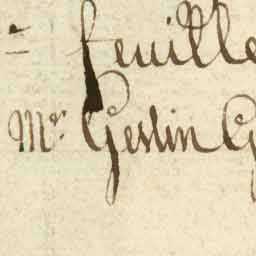 = feuille
Mr. Geslin G